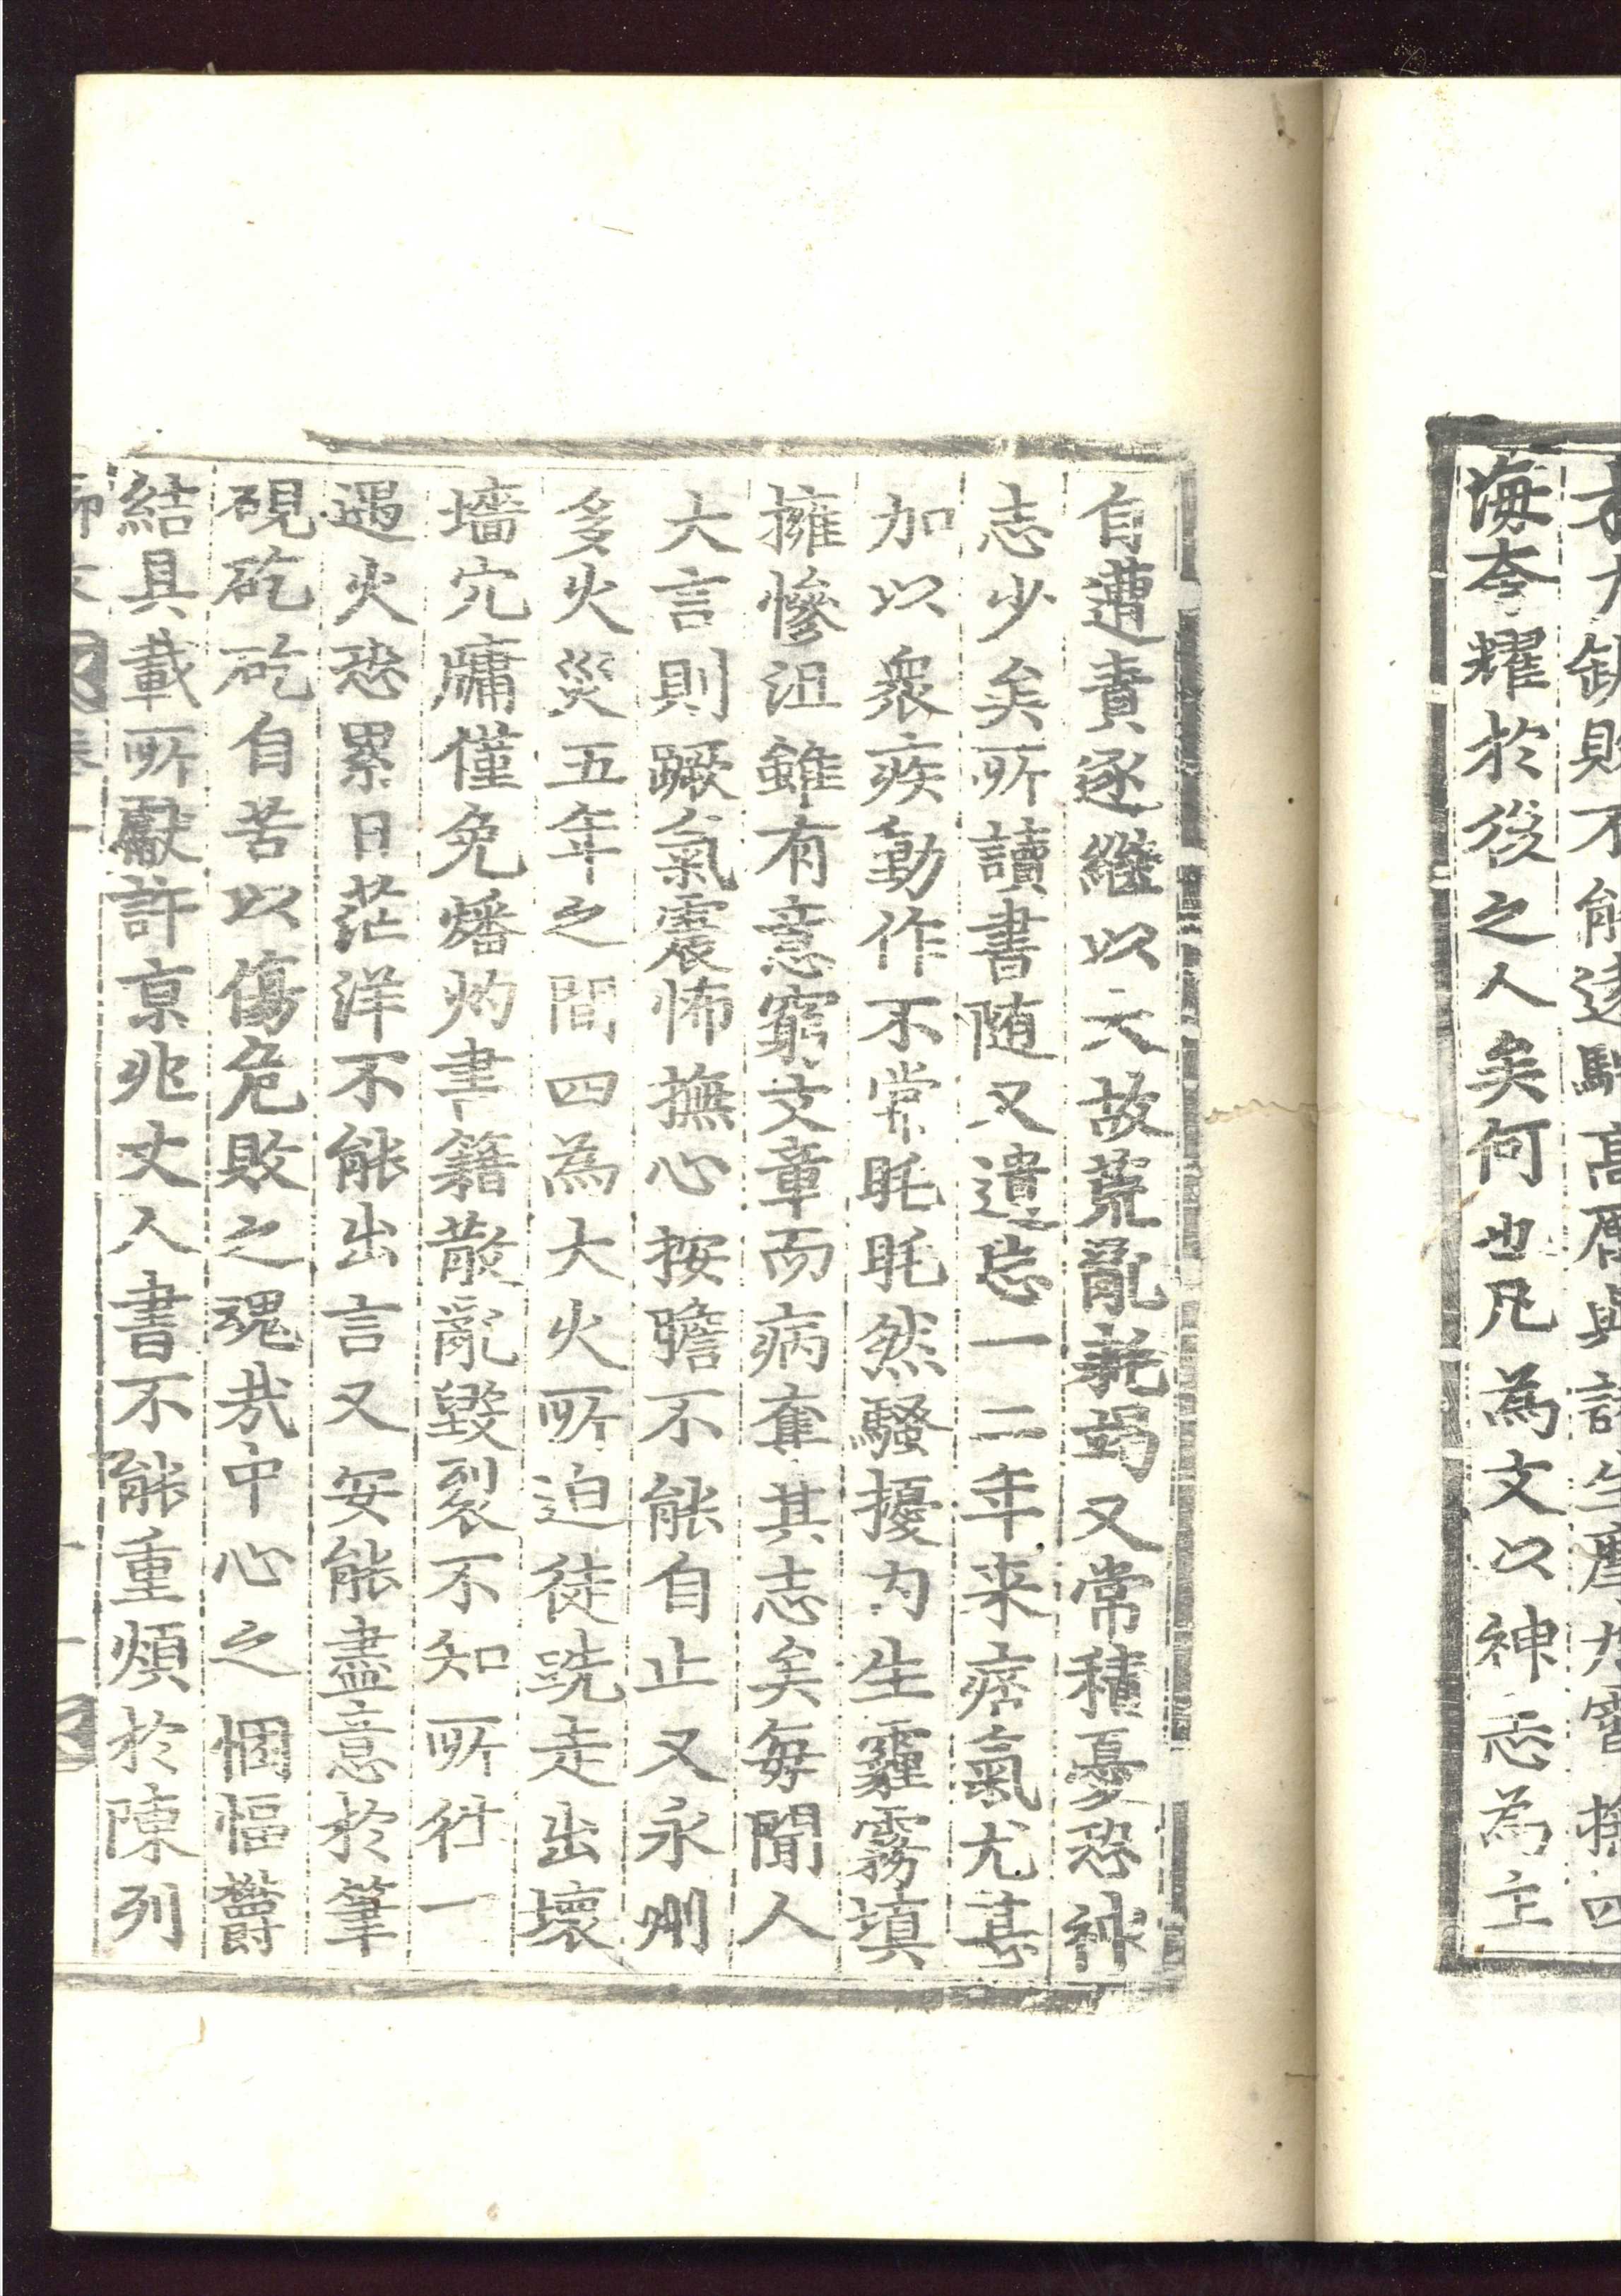 海夲耀於後之人矣何也凡為文以神志為主
自遭責逐継以大故荒亂耗竭又常積憂恐神
志少矣所讀書随又遺忘一二年来痞氣尤甚
加以衆疾動作不常眊眊然騷擾内生霾霧填
擁慘沮雖有意窮文章而病奪其志矣每聞人
大言則蹶氣震怖撫心按膽不能自止又永州
多火災五年之間四為大火所迫徒跣走出壞
墻穴牖僅免燔灼書籍散亂毀裂不知所徃一
遇火恐累日茫洋不能出言又安能盡意於筆
硯矻矻自苦以傷危敗之魂㢤中心之悃愊鬱
結具載所獻許京兆丈人書不能重煩於陳列